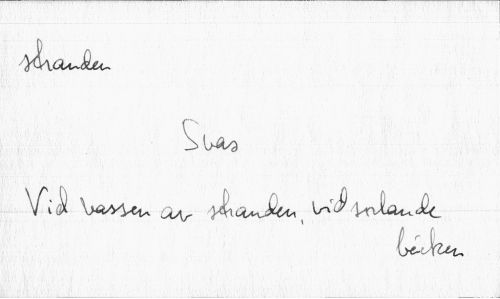 stranden
Svas
Vid vassen av stranden, vid sorlande
bäcken